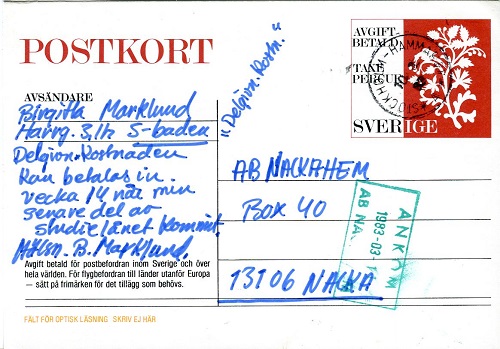 POSTKORT
AVGIFT
BETALD
TAXE
PERÇUE
SVERIGE
AVSÄNDARE
Birgitta Marklund
Harvg. 3, 1tr S-baden
Delgivn.kostnaden
kan betalas in
vecka 14 när min
senare del av
studielånet kommit.
B. Marklund.
"Delgivn.kostn."
AB NACKAHEM
BOX 40
13106 NACKA
ANKOM
1983-03-
AB NA
Avgift betald för postbefordran inom Sverige och över
hela världen. För flygbefordran till länder utanför Europa
– sätt på frimärken för det tillägg som behövs.
FÄLT FÖR OPTISK LÄSNING SKRIV EJ HÄR